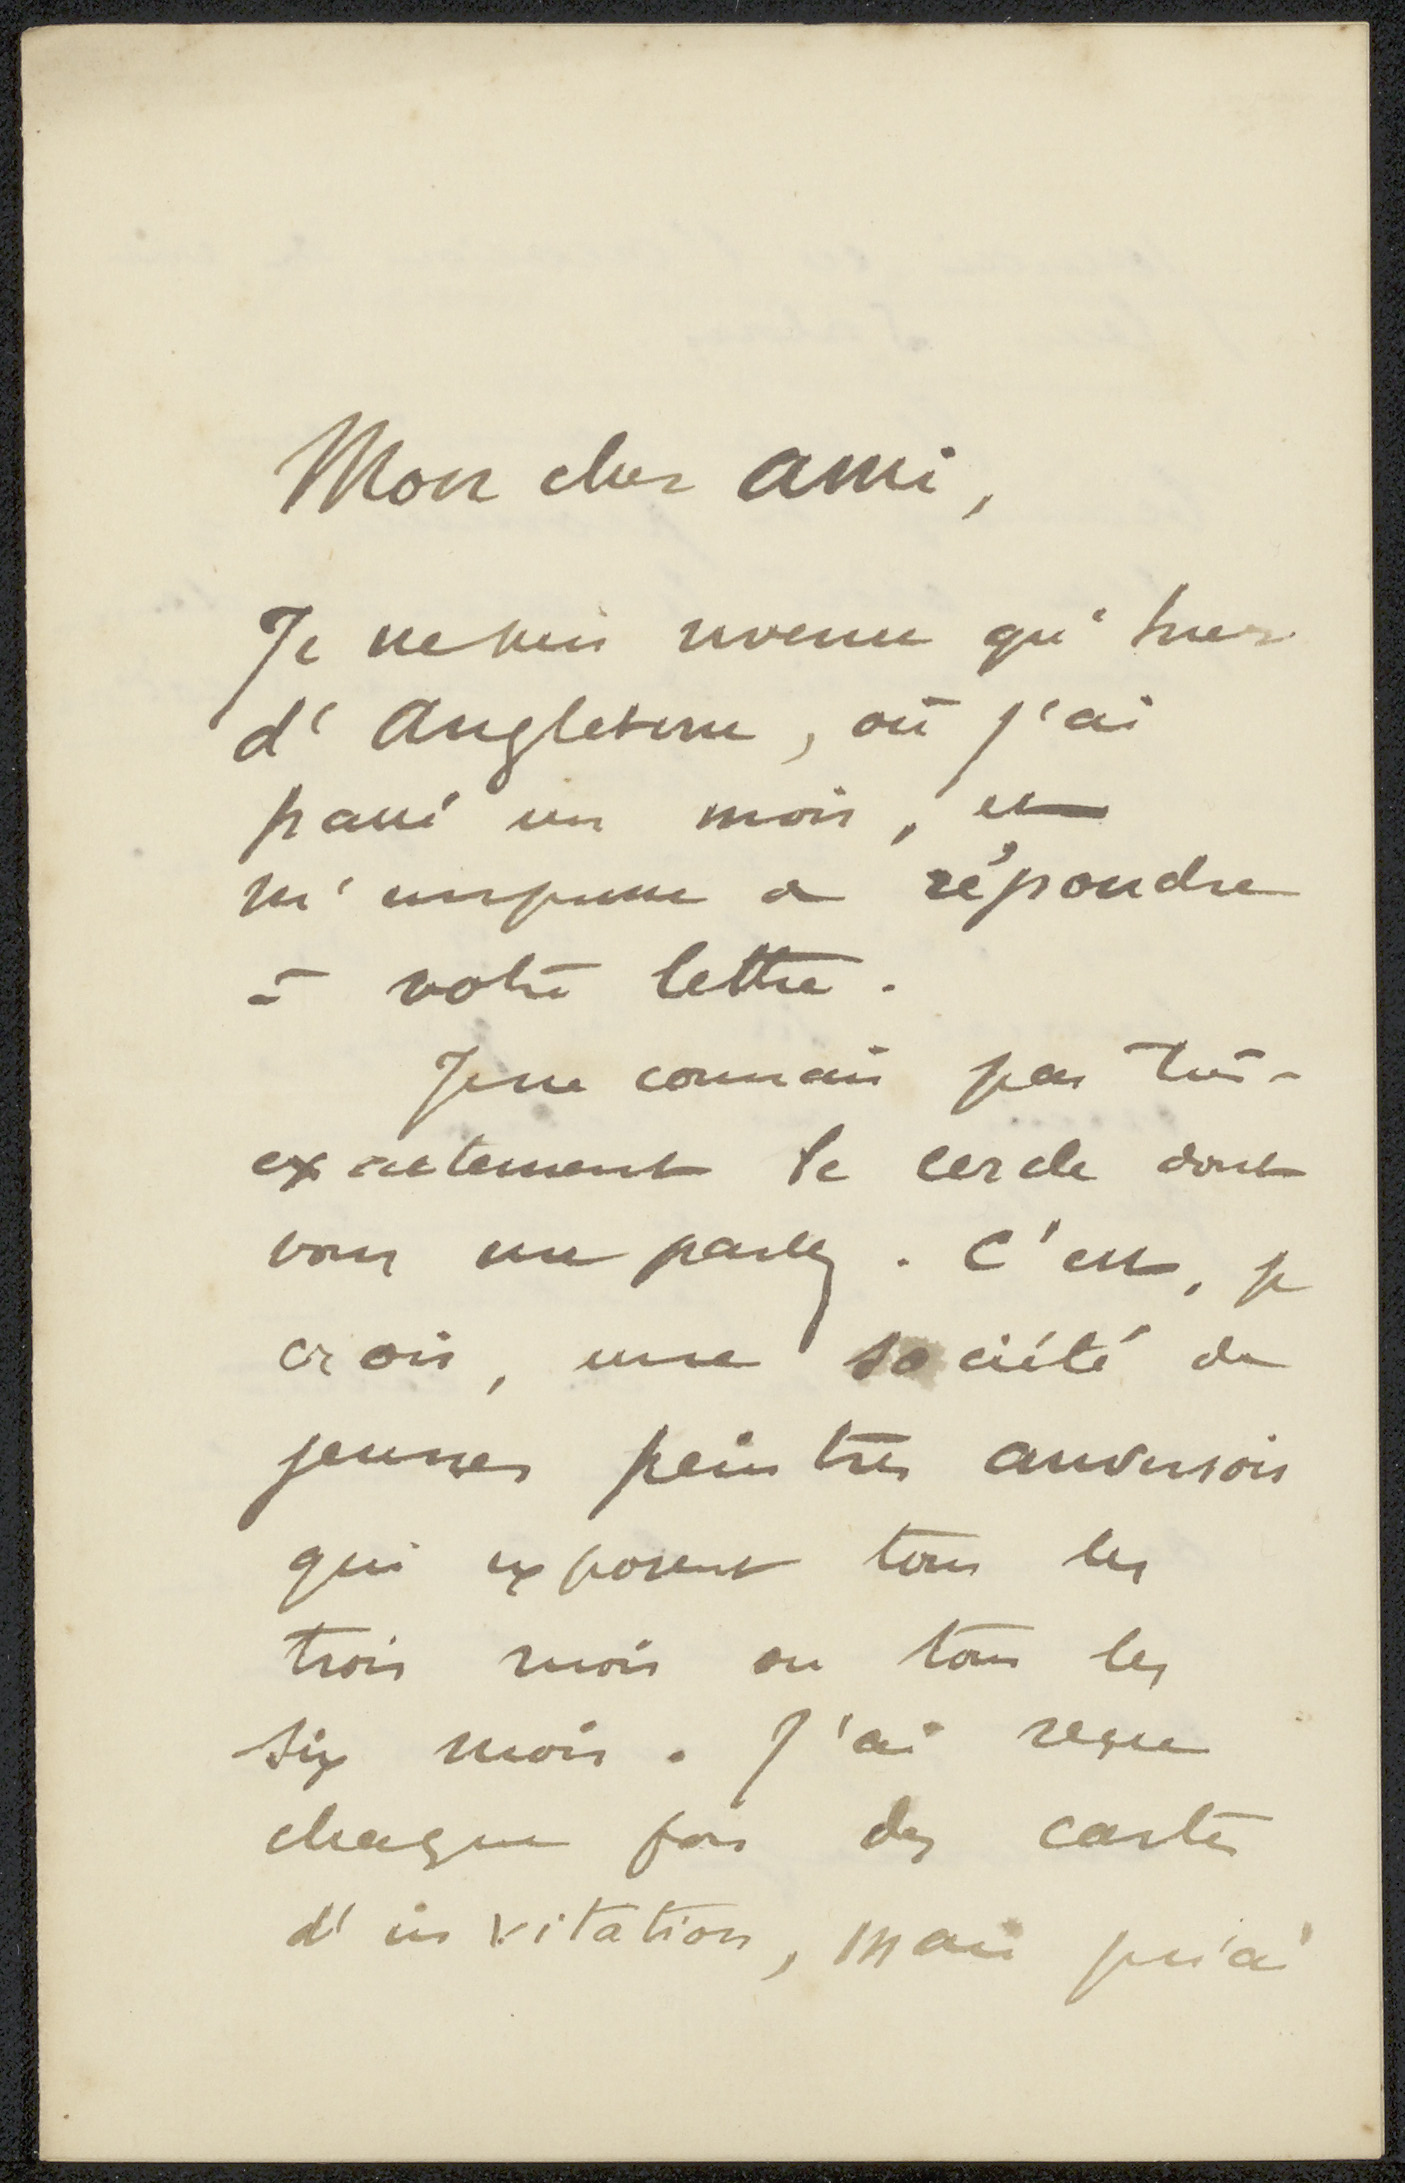 Mon cher ami,
Je ne suis revenu qu'hier
d'Angleterre, où j'ai
passé un mois, et
m'empresse à répondre
à votre lettre.
Je ne connais pas très-
exactement le cercle dont
vous me parlez. C'est, je
crois, une société de
jeunes peintres anversois
qui exposent tous les
trois mois ou tous les
six mois. J'ai reçu
chaque fois des cartes
d'invitation, mais je n'ai